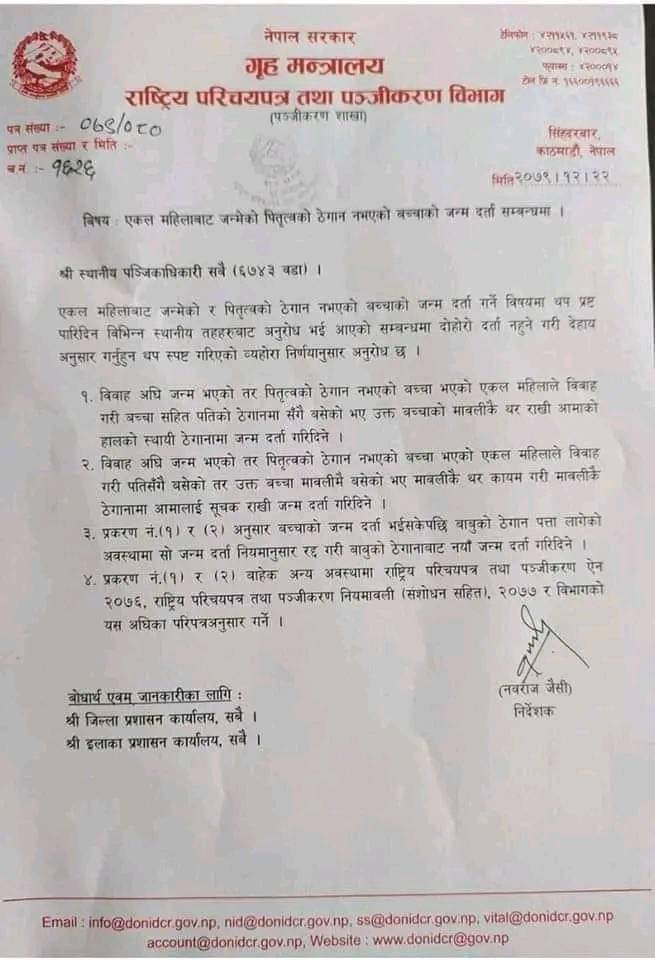 नेपाल सरकार
गृह मन्त्रालय
राष्ट्रिय परिचयपत्र तथा पञ्जीकरण विभाग
(पञ्जीकरण शाखा)
टेलिफोन : ४२११५६१, ४२११९३८
४२००८९४, ४२००८९५
फ्याक्स : ४२०००९४
टोल फ्रि नं १६६००१६६६६६
पत्र संख्या :- ०७९/०८०
प्राप्त पत्र संख्या र मिति :-
च.नं. :- १६२६
सिंहदरबार,
काठमाडौं, नेपाल
मिति २०७९।१२।२२
विषय : एकल महिलाबाट जन्मेको पितृत्वको ठेगान नभएको बच्चाको जन्म दर्ता सम्बन्धमा ।
श्री स्थानीय पञ्जिकाधिकारी सबै (६७४३ वडा) ।
एकल महिलाबाट जन्मेको र पितृत्वको ठेगान नभएको बच्चाको जन्म दर्ता गर्ने विषयमा थप प्रष्ट
पारिदिन विभिन्न स्थानीय तहहरुबाट अनुरोध भई आएको सम्बन्धमा दोहोरो दर्ता नहुने गरी देहाय
अनुसार गर्नुहुन थप स्पष्ट गरिएको व्यहोरा निर्णयानुसार अनुरोध छ ।
१. विवाह अघि जन्म भएको तर पितृत्वको ठेगान नभएको बच्चा भएको एकल महिलाले विवाह
गरी बच्चा सहित पतिको ठेगानमा सँगै बसेको भए उक्त बच्चाको मावलीकै थर राखी आमाको
हालको स्थायी ठेगानामा जन्म दर्ता गरिदिने ।
२. विवाह अघि जन्म भएको तर पितृत्वको ठेगान नभएको बच्चा भएको एकल महिलाले विवाह
गरी पतिसँगै बसेको तर उक्त बच्चा मावलीमै बसेको भए मावलीकै थर कायम गरी मावलीकै
ठेगानामा आमालाई सूचक राखी जन्म दर्ता गरिदिने ।
३. प्रकरण नं.(१) र (२) अनुसार बच्चाको जन्म दर्ता भईसकेपछि बाबुको ठेगान पत्ता लागेको
अवस्थामा सो जन्म दर्ता नियमानुसार रद्द गरी बाबुको ठेगानाबाट नयाँ जन्म दर्ता गरिदिने ।
४. प्रकरण नं.(१) र (२) बाहेक अन्य अवस्थामा राष्ट्रिय परिचयपत्र तथा पञ्जीकरण ऐन
२०७६, राष्ट्रिय परिचयपत्र तथा पञ्जीकरण नियमावली (संशोधन सहित), २०७७ र विभागको
यस अघिका परिपत्रअनुसार गर्ने ।
(नवराज जैसी)
निर्देशक
बोधार्थ एवम् जानकारीका लागि :
श्री जिल्ला प्रशासन कार्यालय, सबै ।
श्री इलाका प्रशासन कार्यालय, सबै ।
Email : info@donidcr.gov.np, nid@donidcr.gov.np, ss@donidcr.gov.np, vital@donidcr.gov.np
account@donidcr.gov.np, Website : www.donidcr@gov.np